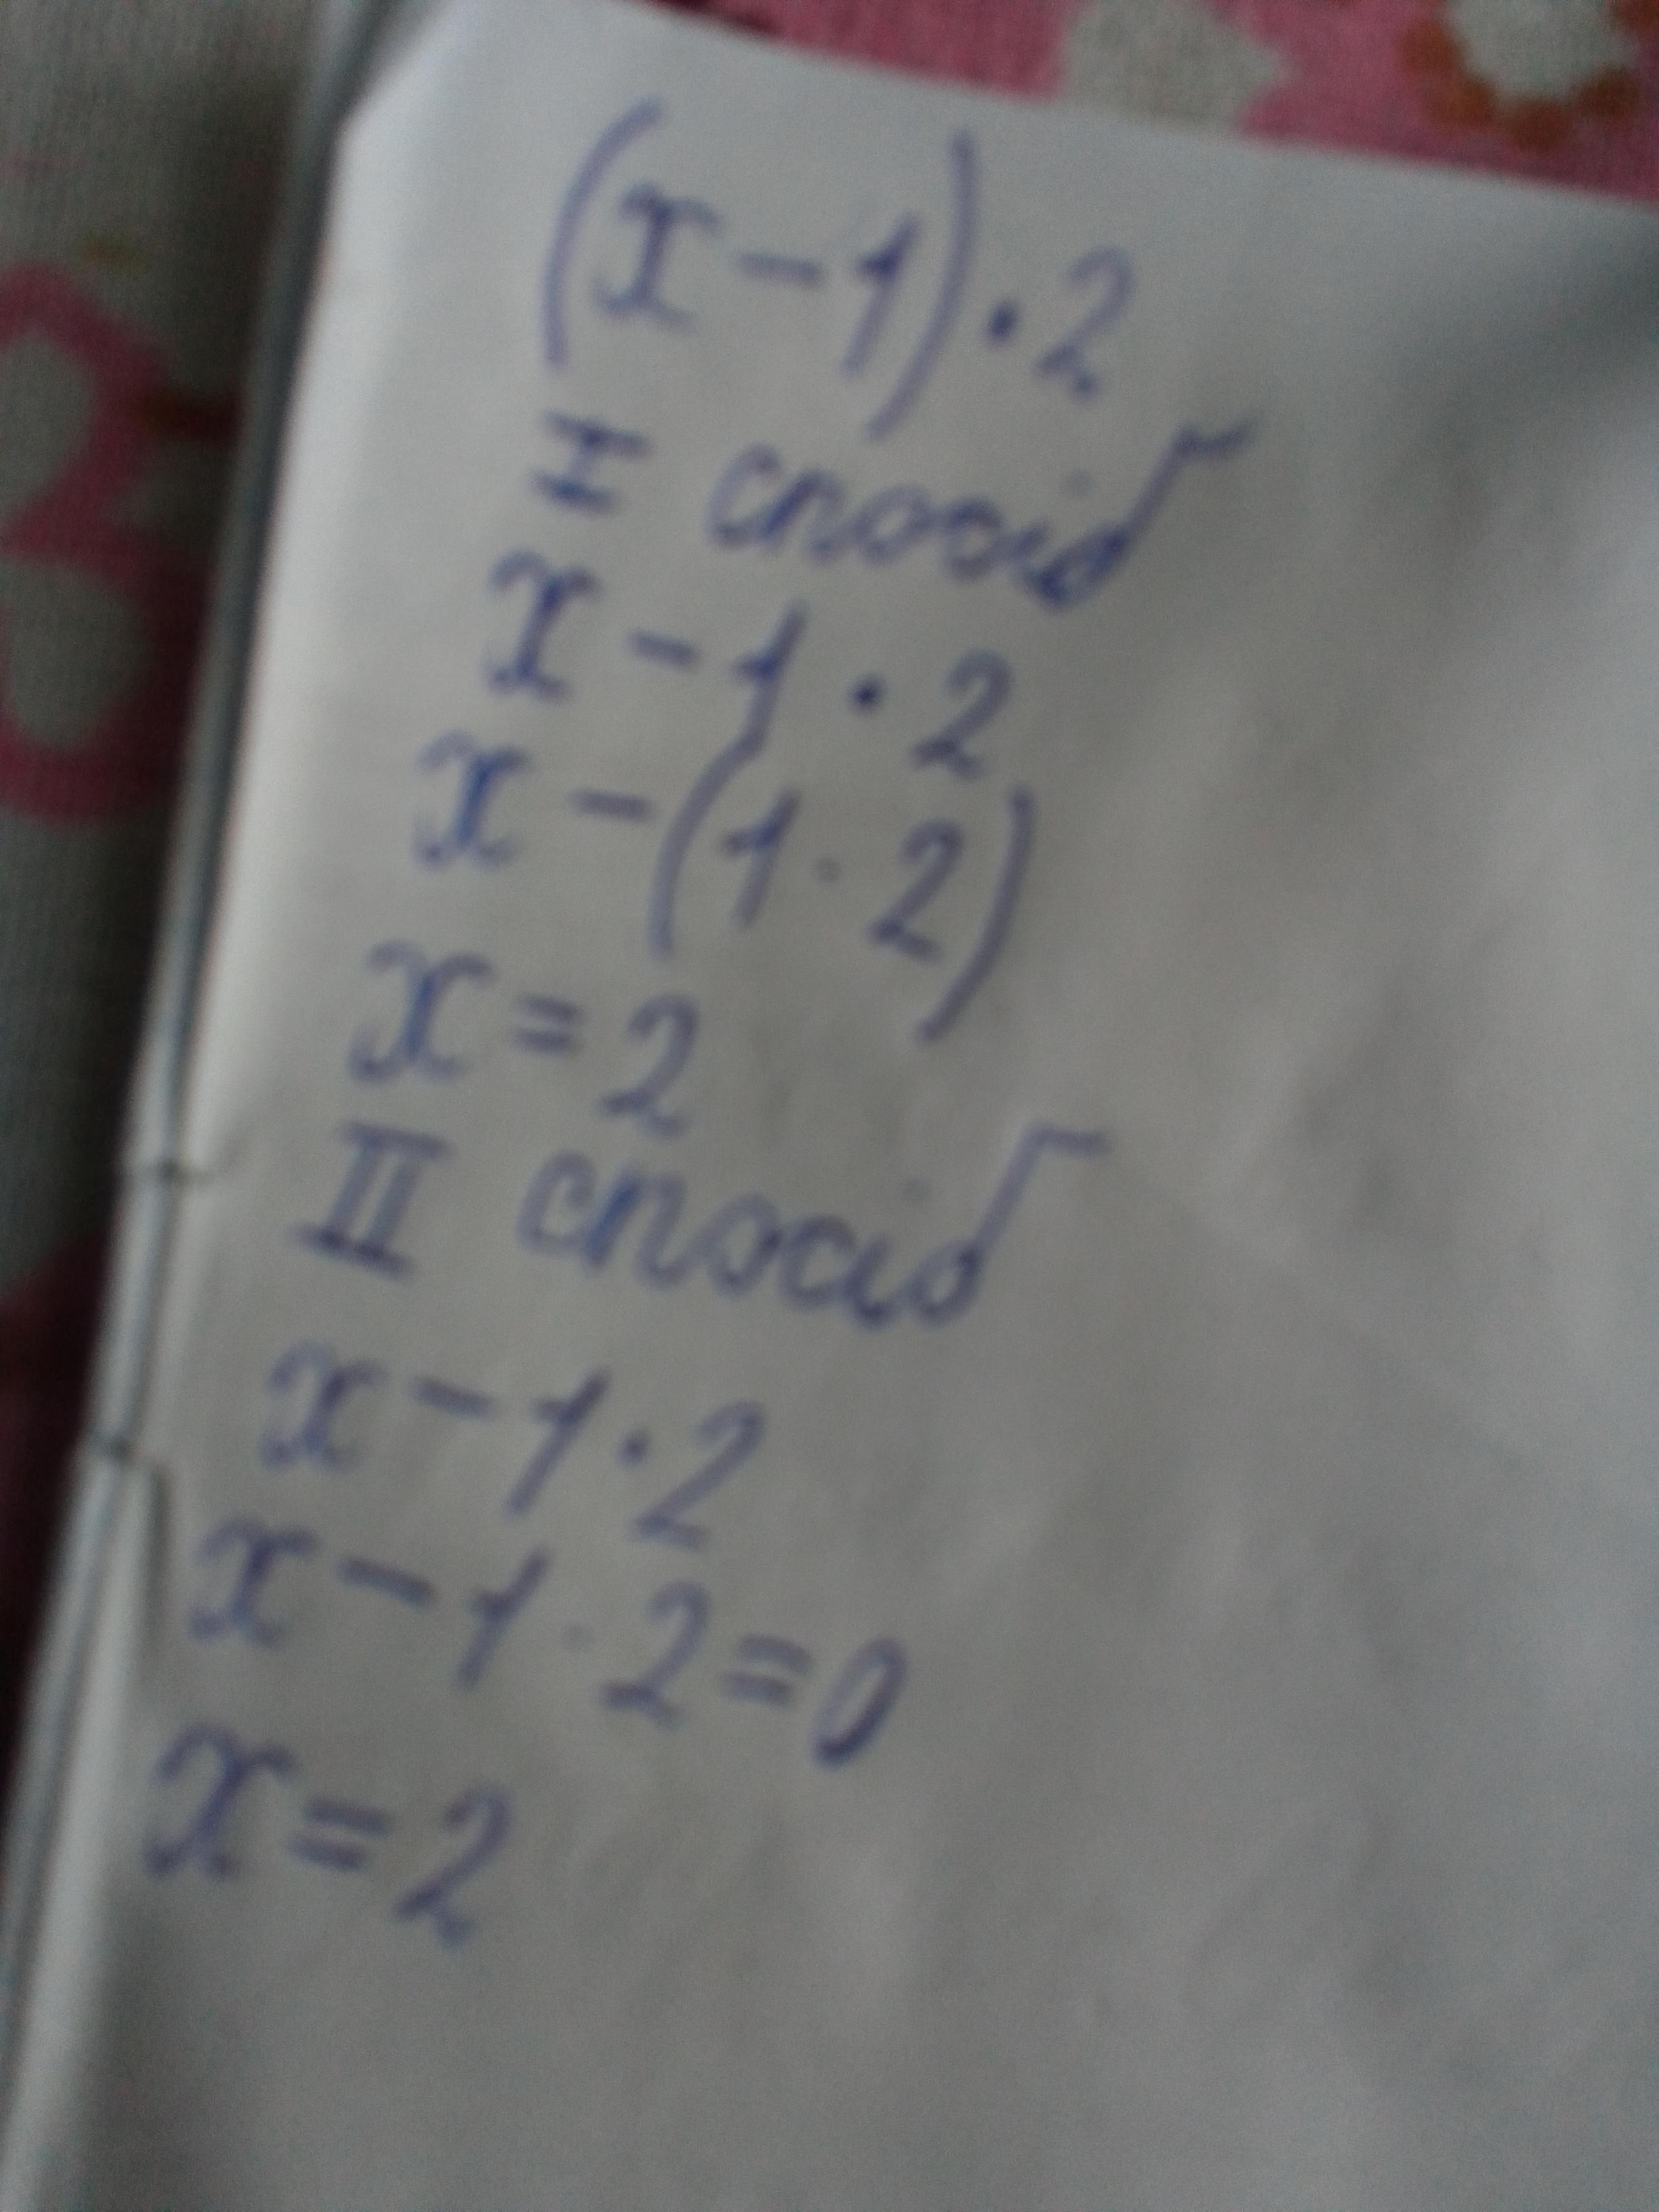 (x-1)·2
I спосіб
x-1·2
x-(1·2)
x=2
II спосіб
x-1·2
x-1·2=0
x=2